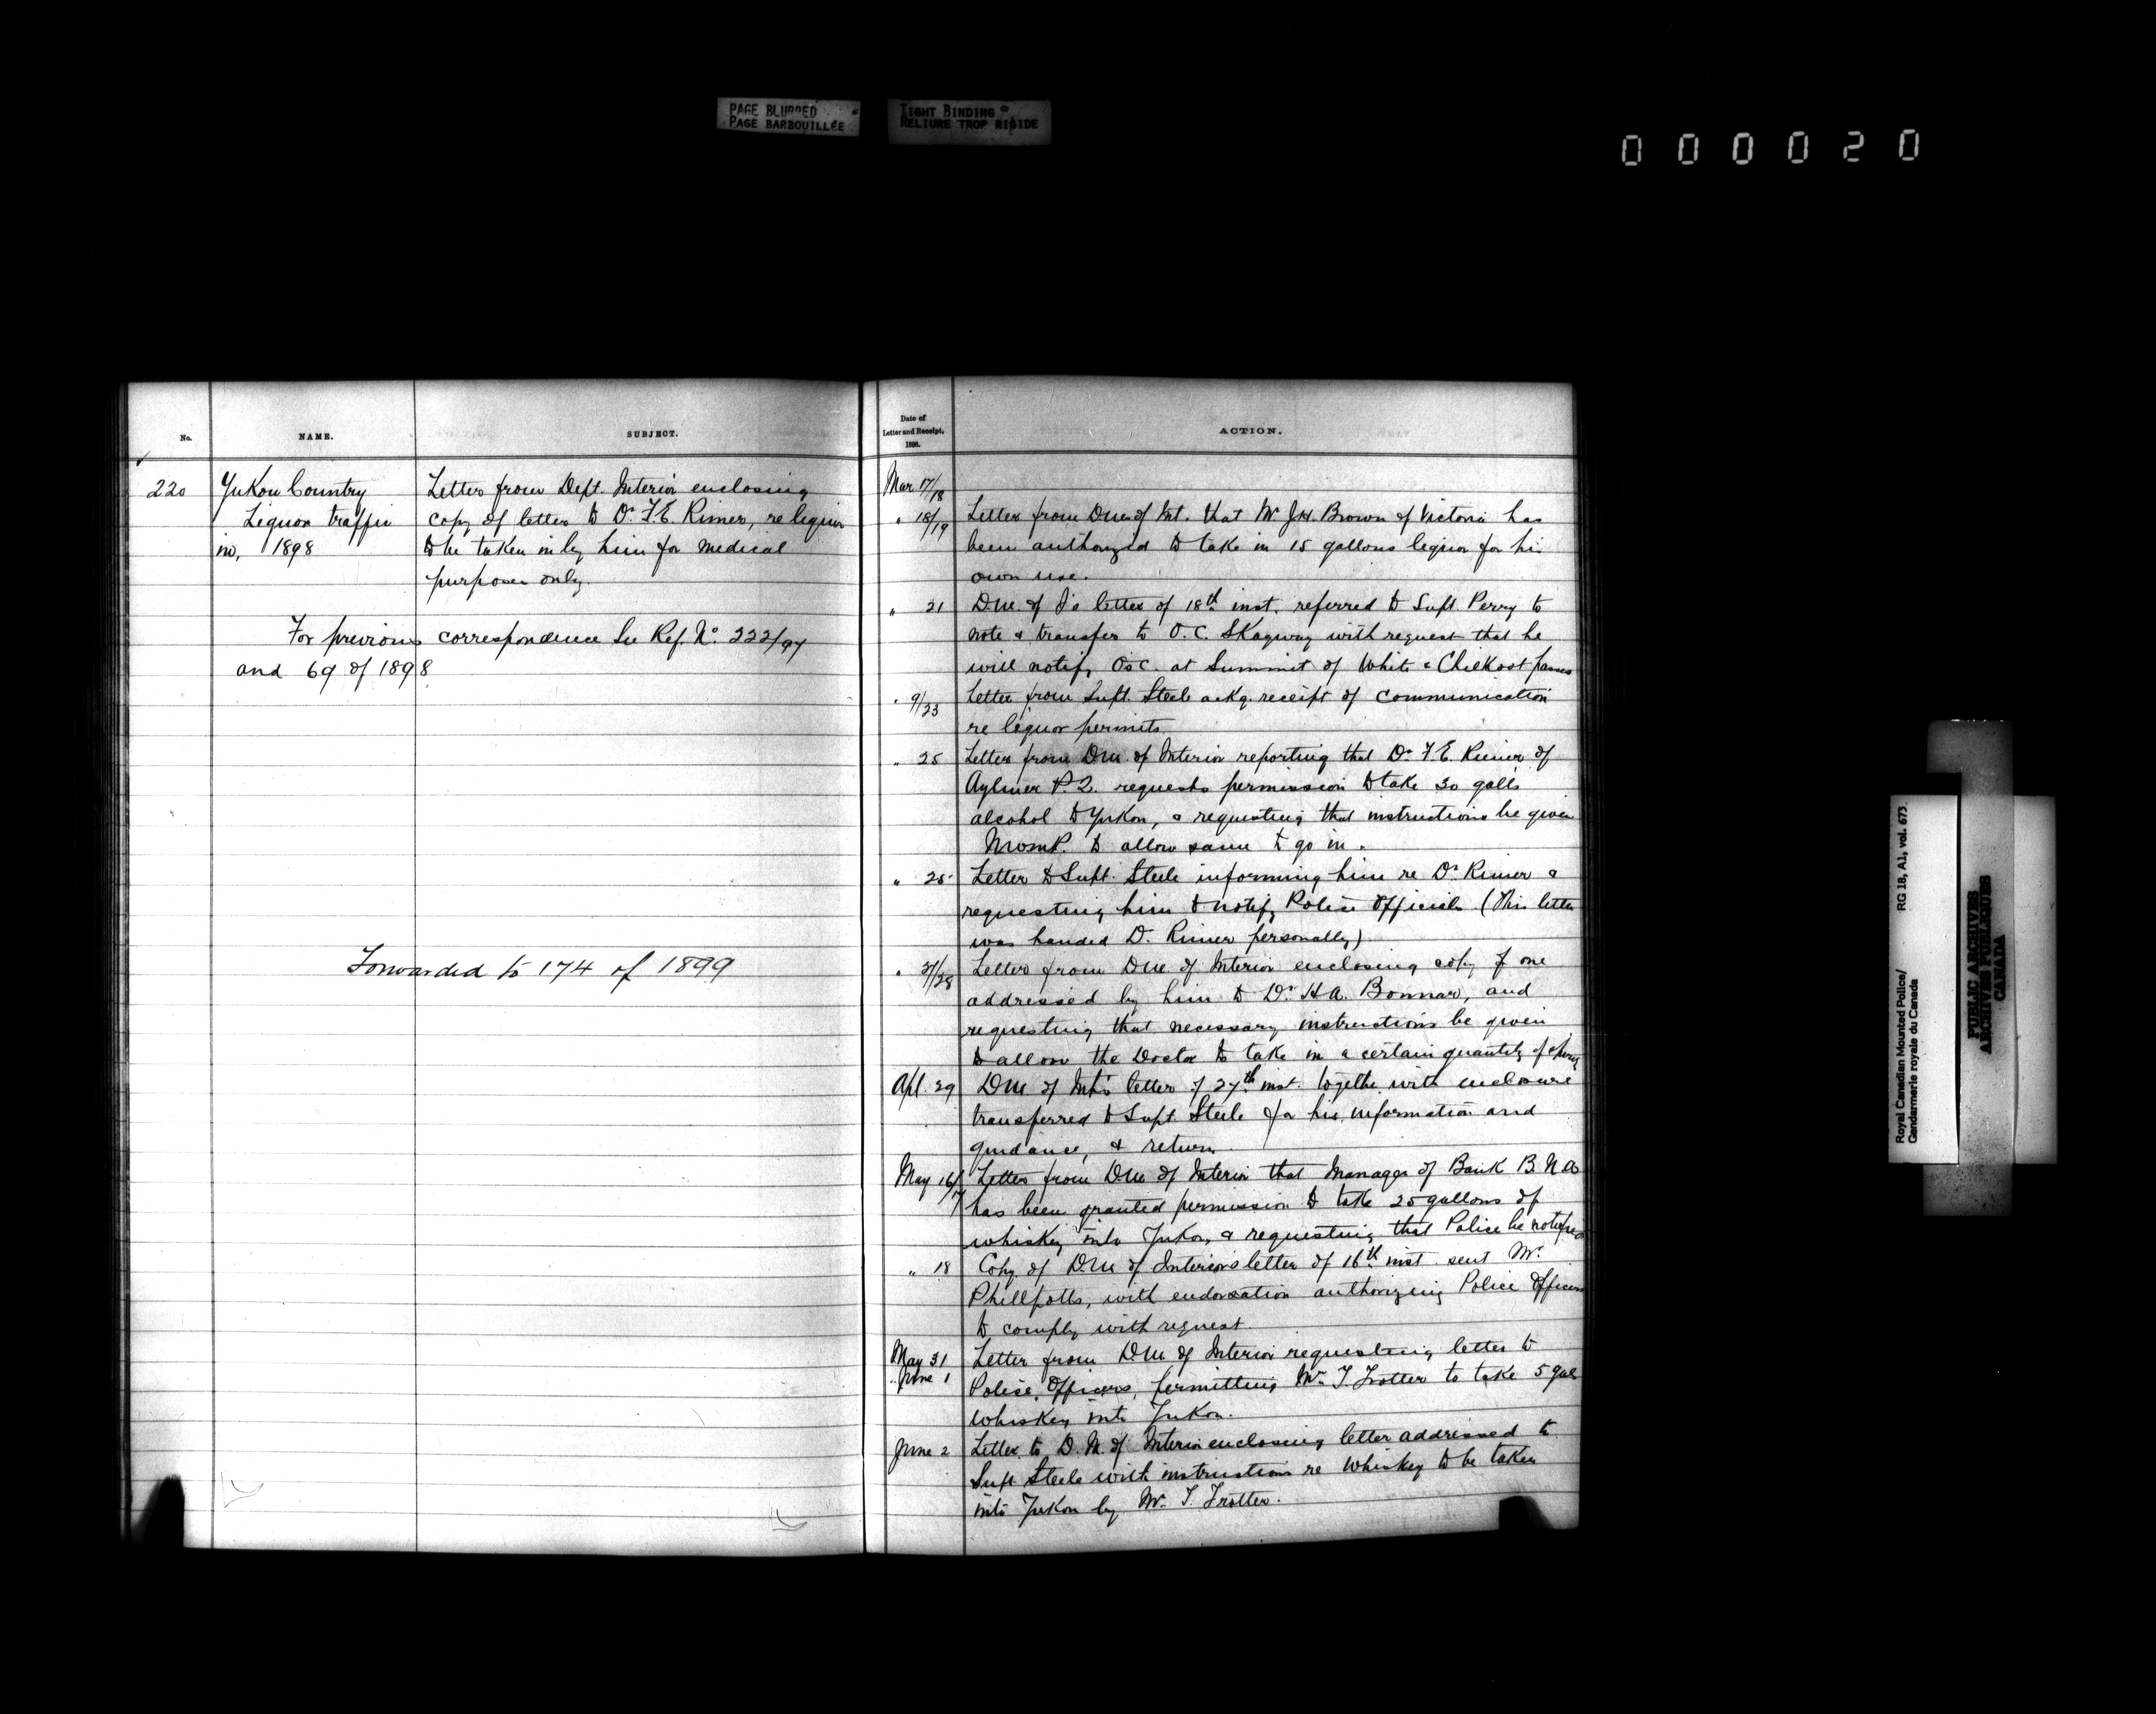 PAGE BLURRED
PAGE BARBOUILLÉE
TIGHT BINDING
RELIURE TROP RIGIDE
000020
No.
NAME.
SUBJECT.
220
Yukon Country
Liquor traffic
in, 1898
Letter from Dept. Interior enclosing
copy of letter to Dr. F.E. Rimer, re liquor
to be taken in by him for medical
purposes only.
For previous correspondence See Ref. No. 222/97
and 69 of 1898
Forwarded to 174 of 1899
Date of
Letter and Receipt,
1898.
ACTION.
Mar. 17/18
" 18/19 Letter from D.M. of Int. that Mr J.H. Brown of Victoria has
been authorized to take in 15 gallons liquor for his
own use.
" 21 D.M. of I's letter of 18th inst. referred to Supt. Perry to
note & transfer to O.C. Skagway with request that he
will notify O's C. at Summit of White & Chilkoot passes
" 9/23 Letter from Supt. Steele ackg. receipt of communication
re liquor permits
" 25 Letter from D.M. of Interior reporting that Dr. F.E. Rimer of
Aylmer P.Q. requests permission to take 30 galls
alcohol to Yukon, & requesting that instructions be given
N.W.M.P. to allow same to go in.
" 25 Letter to Supt. Steele informing him re Dr. Rimer &
requesting him to notify Police Officials (This letter
was handed D. Rimer personally)
" 27/28 Letter from D.M. of Interior enclosing copy of one
addressed by him to Dr. H.A. Bonnar, and
requesting that necessary instructions be given
to allow the Doctor to take in a certain quantity of
Apl. 29 D.M. of Int's letter of 27th inst. together with enclosure
transferred to Supt. Steele for his information and
guidance, & return.
May 16/17 Letter from D.M. of Interior that Manager of Bank B.N.A
has been granted permission to take 25 gallons of
whiskey into Yukon, & requesting that Police be notified
" 18 Copy of D.M. of Interior's letter of 16th inst. sent Mr.
Phillpotts, with endorsation authorizing Police Officers
to comply with request.
May 31 Letter from D.M. of Interior requesting letter to
June 1 Police Officers, permitting Mr. T. Trotter to take 5 gal
whiskey into Yukon.
June 2 Letter to D.M. of Interior enclosing letter addressed to
Supt Steele with instructions re Whiskey to be taken
into Yukon by Mr. T. Trotter.
Royal Canadian Mounted Police/ RG 18, A1, vol. 673.
Gendarmerie royale du Canada
PUBLIC ARCHIVES
ARCHIVES PUBLIQUES
CANADA